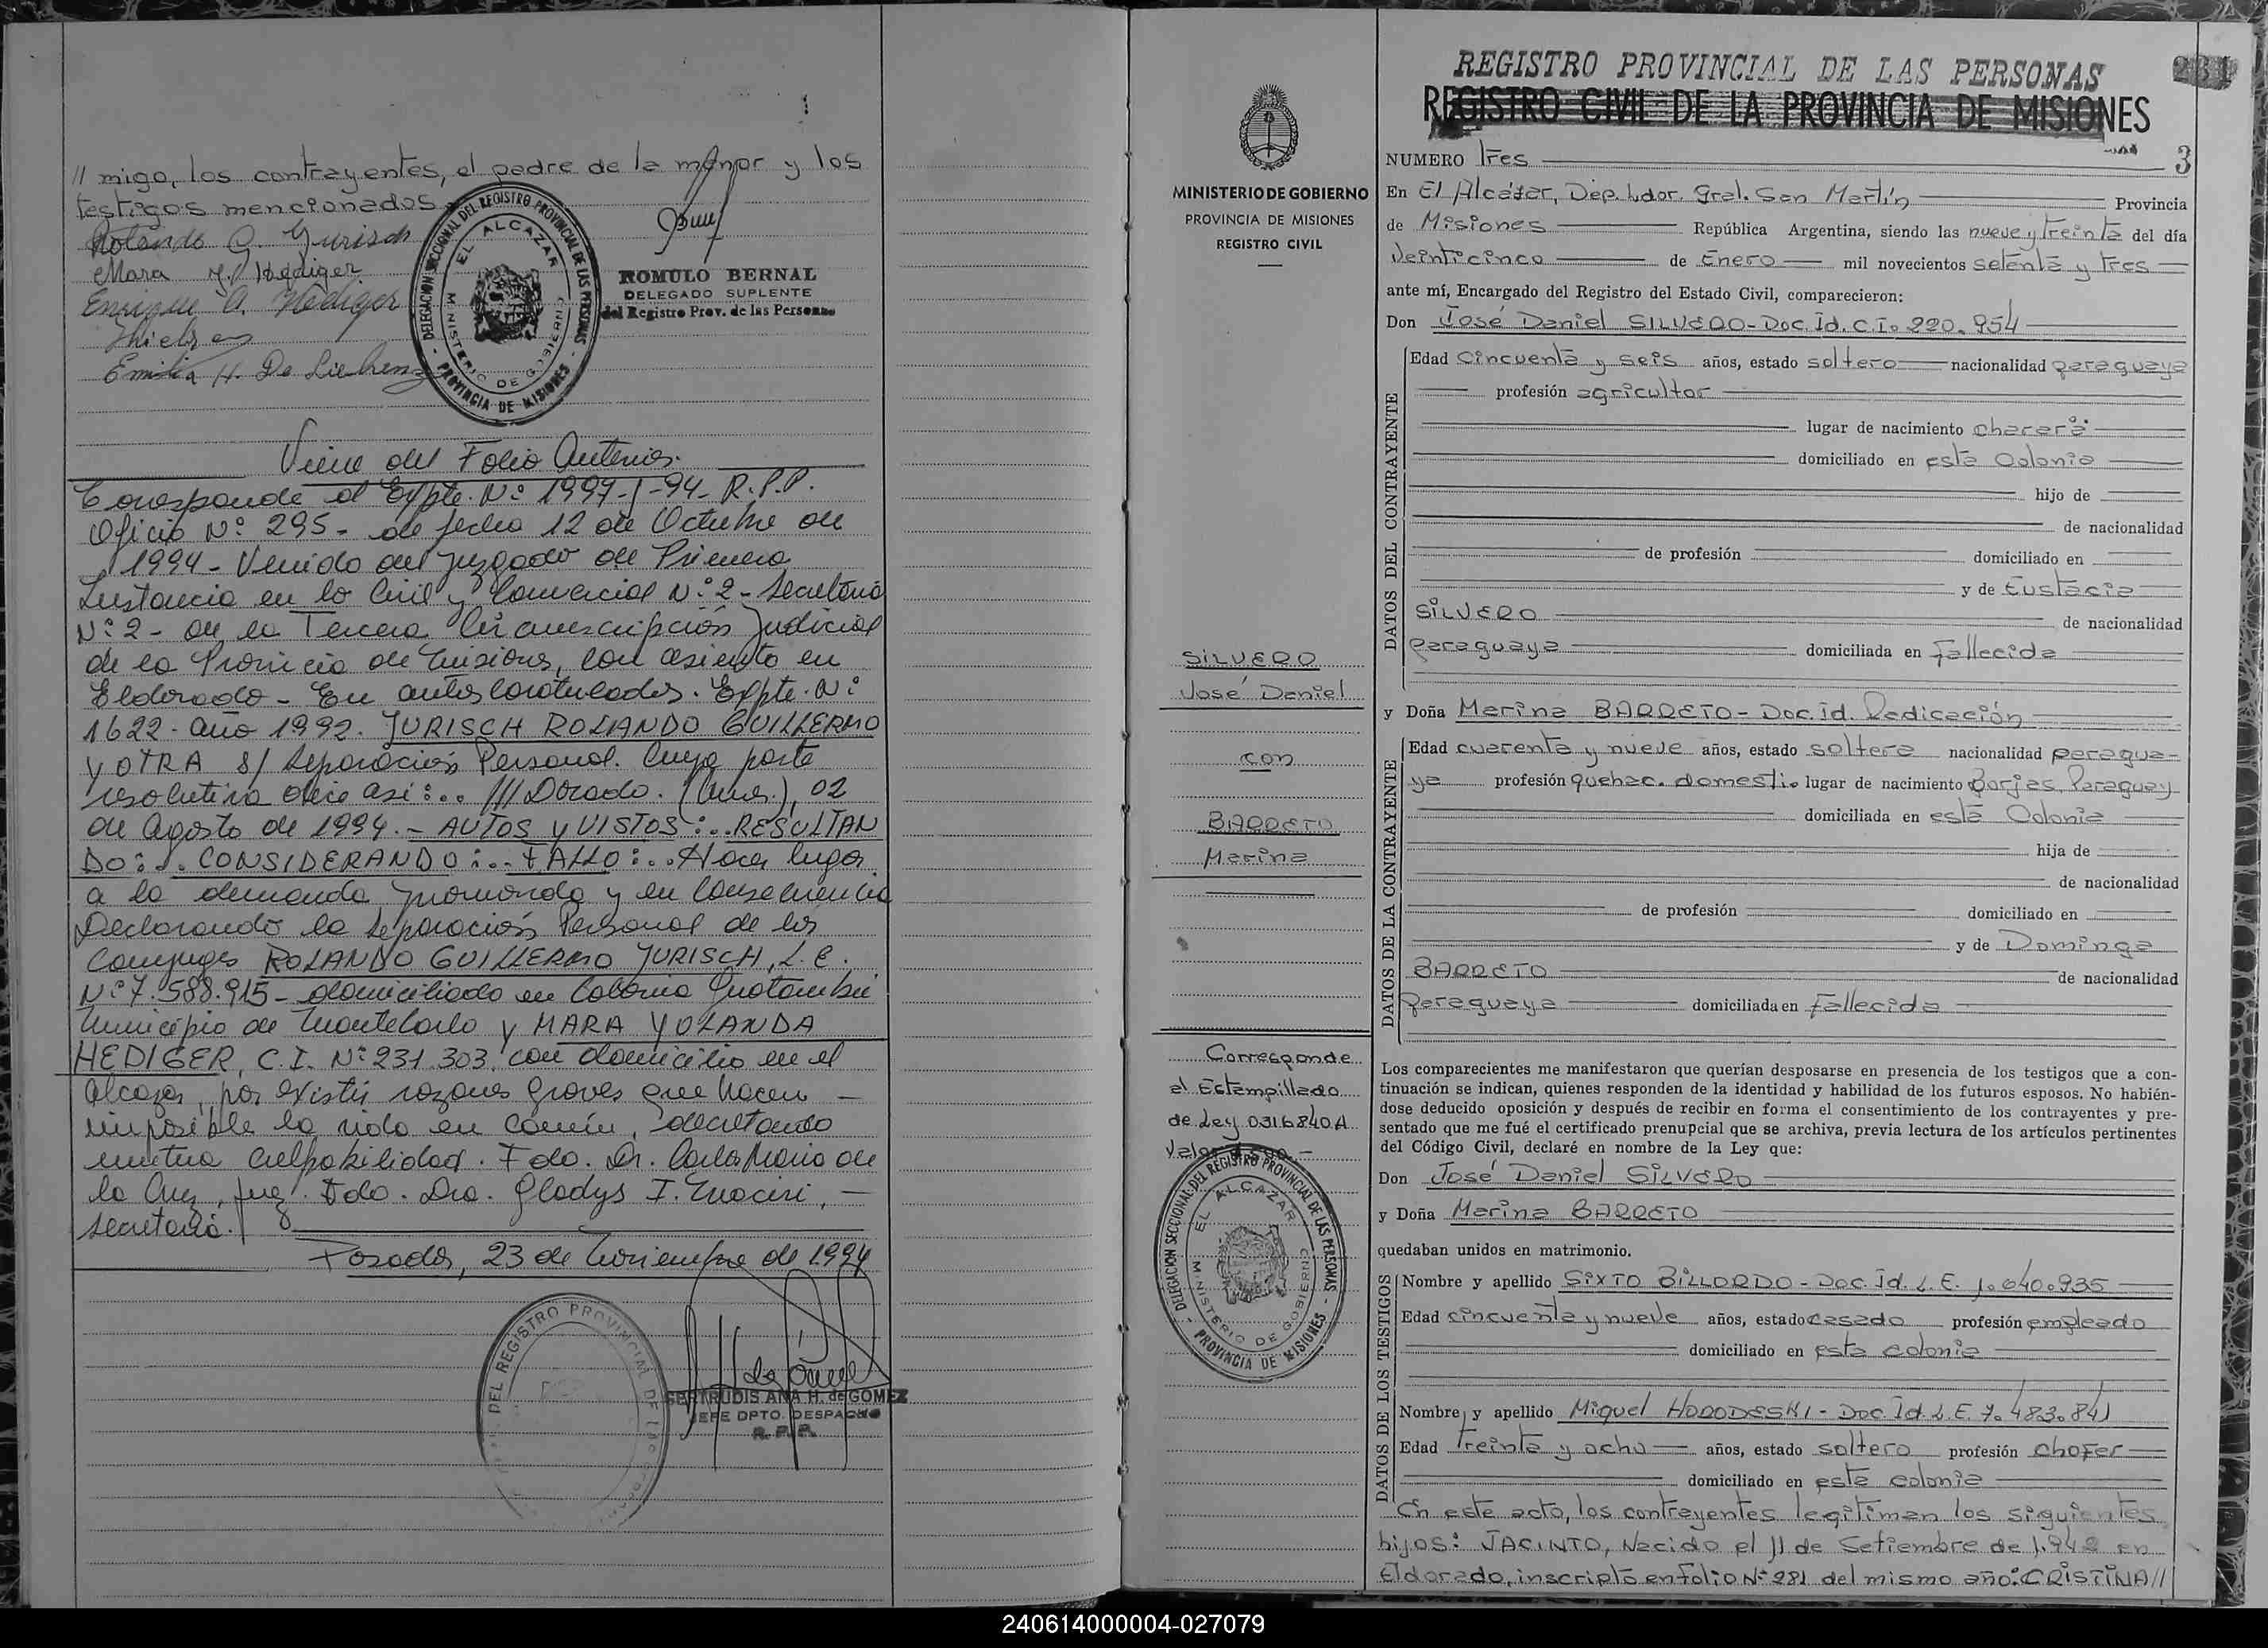 // migo, los contrayentes, el padre de la menor y los
testigos mencionados
Rolando G. Yurisch
Mara Y. Hediger
Enrique A. Hediger
Emilia H. De Liebrenz
DELEGACION SECCIONAL DEL REGISTRO PROVINCIAL DE LAS PERSONAS - PROVINCIA DE MISIONES
EL ALCAZAR
MINISTERIO DE GOBIERNO
ROMULO BERNAL
DELEGADO SUPLENTE
del Registro Prov. de las Personas
Viene del Folio Anterior.
Corresponde al Expte. Nº 1997-J-94- R.P.P.
Oficio Nº 295- de fecha 12 de Octubre de
1994- Venido del Juzgado de Primera
Instancia en lo Civil y Comercial Nº 2- Secretaría
Nº 2- de la Tercera Circunscripción Judicial
de la Provincia de Misiones, con asiento en
Eldorado- En autos Caratulados. Expte. Nº
1622- año 1992. JURISCH ROLANDO GUILLERMO
Y OTRA S/ Separación Personal. Cuya parte
resolutiva dice así:.. ///Dorado. (Mnes.), 02
de Agosto de 1994.- AUTOS y VISTOS:..RESULTAN
DO:.. CONSIDERANDO:.. FALLO:..Hacer lugar
a la demanda promovida y en Consecuencia
Declarando la Separación Personal de los
Conyuges ROLANDO GUILLERMO JURISCH, L.E.
Nº 7.588.915- domiciliado en Colonia Guatambú
Municipio de Montecarlo y MARA YOLANDA
HEDIGER, C.I. Nº 231.303, con domicilio en el
Alcazar, por existir razones graves que hacen -
imposible la vida en común, decretando
mutua culpabilidad. Fdo. Dr. Carlos Mario de
la Cruz, Juez. Fdo. Dra. Gladys I. Mocini, -
Secretaria.
Posadas, 23 de Noviembre de 1994
DEL REGISTRO PROVINCIAL DE
GERTRUDIS ANA H. de GOMEZ
JEFE DPTO. DESPACHO
R. P. P.
MINISTERIO DE GOBIERNO
PROVINCIA DE MISIONES
REGISTRO CIVIL
SILVERO
José Daniel
con
BARRETO
Marina
Corresponde
al Estampillado
de Ley 0316840A
Valor
DELEGACION SECCIONAL DEL REGISTRO PROVINCIAL DE LAS PERSONAS - PROVINCIA DE MISIONES
EL ALCAZAR
MINISTERIO DE GOBIERNO
REGISTRO PROVINCIAL DE LAS PERSONAS
231
REGISTRO CIVIL DE LA PROVINCIA DE MISIONES
NUMERO Tres 3
En El Alcázar, Dep. Ldor. Gral. San Martín Provincia
de Misiones República Argentina, siendo las nueve y treinta del día
Veinticinco de Enero mil novecientos setenta y tres
ante mí, Encargado del Registro del Estado Civil, comparecieron:
Don José Daniel SILVERO- Doc. Id. C.I. 220.954
DATOS DEL CONTRAYENTE
Edad Cincuenta y seis años, estado soltero nacionalidad paraguaya
profesión agricultor
lugar de nacimiento
domiciliado en esta Colonia
hijo de
de nacionalidad
de profesión domiciliado en
y de Eustacia
SILVERO de nacionalidad
paraguaya domiciliada en Fallecida
y Doña Marina BARRETO- Doc. Id. Radicación
DATOS DE LA CONTRAYENTE
Edad cuarenta y nueve años, estado soltera nacionalidad paragua-
ya profesión quehac. domestic. lugar de nacimiento Borjas, Paraguay
domiciliada en esta Colonia
hija de
de nacionalidad
de profesión domiciliado en
y de Dominga
BARRETO de nacionalidad
Paraguaya domiciliada en Fallecida
Los comparecientes me manifestaron que querían desposarse en presencia de los testigos que a con-
tinuación se indican, quienes responden de la identidad y habilidad de los futuros esposos. No habién-
dose deducido oposición y después de recibir en forma el consentimiento de los contrayentes y pre-
sentado que me fué el certificado prenupcial que se archiva, previa lectura de los artículos pertinentes
del Código Civil, declaré en nombre de la Ley que:
Don José Daniel SILVERO
y Doña Marina BARRETO
quedaban unidos en matrimonio.
DATOS DE LOS TESTIGOS
Nombre y apellido SIXTO BILLORDO- Doc. Id. L.E. 1.640.935
Edad cincuenta y nueve años, estado casado profesión empleado
domiciliado en esta colonia
Nombre y apellido Miguel HORODESKI- Doc. Id. L.E. 7.483.841
Edad Treinta y ocho años, estado soltero profesión chofer
domiciliado en esta colonia
En este acto, los contrayentes legitiman los siguientes
hijos: JACINTO, Nacido el 11 de Setiembre de 1.942 en
Eldorado, inscripto en folio Nº 281 del mismo año: CRISTINA//
240614000004-027079